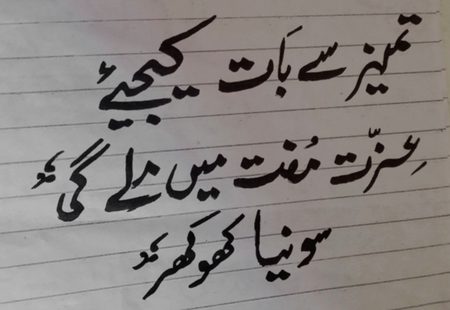 تمیز سے بَات کیجیۓ
عِزّت مُفت میں مِلے گی
سونیا کھوکھر